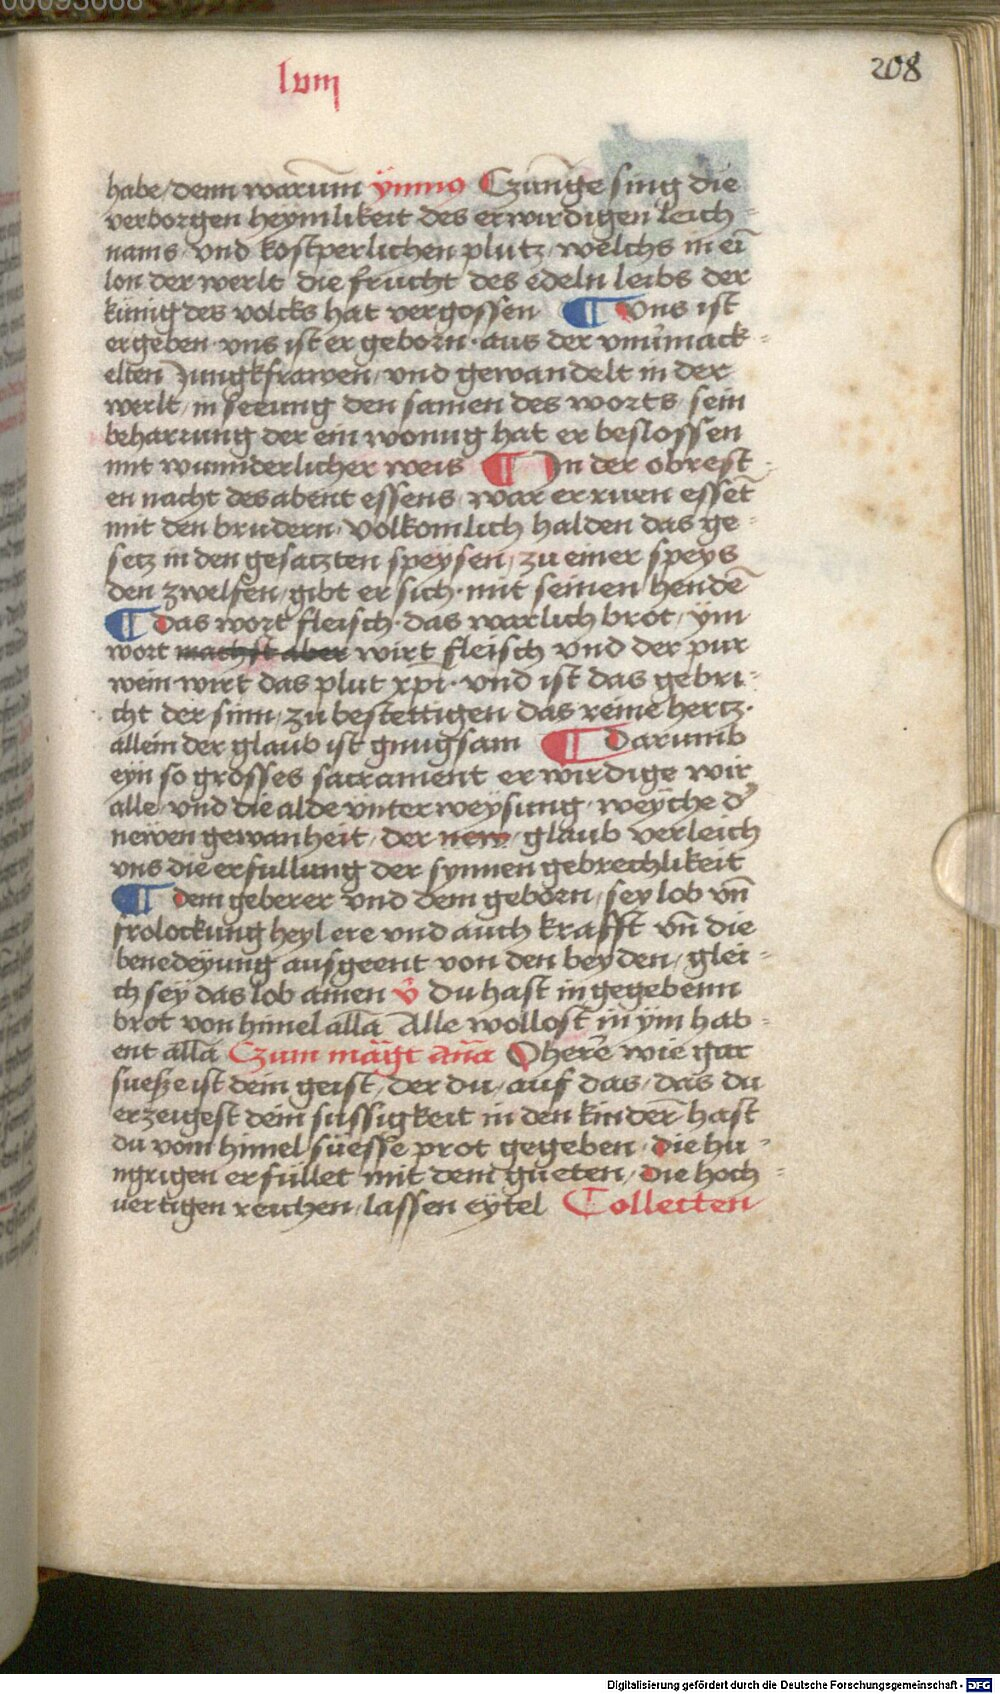 00093668
lviij
208
habe / denn warūm ÿmnus Czūnge sing die
verborgen heymlikeit des erwirdigen leich=
nams / vnd kostperlichen plutz / welchs in eī
lon der werlt die frucht des edeln leibs der
künig des volcks hat vergossen ¶ Vns ist
ergeben · vns ist er geborn · aus der vnuͦmack=
elten Jungkfrawen / vnd gewandelt in der
werlt / in seeung den samen des worts / sein
beharrung der ein wonug hat er beslossen
mit wunnderlicher weis ¶ In der obrest=
en nacht des abent essens / war er ruen esset̄
mit den brudern / volkomlich halden das ge=
setz in den gesatzten speÿsen / zu einer speÿs
den zwelfen / gibt er sich · mit seinen hendē
¶ das wort fleisch · das warlich brot / ÿm
wort machst aber wirt fleisch vnd der pur
wein wirt das plut xp̄i · vnd ist das gebri=
cht der sinn / zu bestettigen das reine hertz ·
allein der glaub ist gnugsam ¶ Darumb
eyn so grosses sacrament erwirdige wir
alle / vnd die alde vnterweÿsung / weÿche d'
newen gewanheit / der new / glaub verleich
vns die erfullung der synnen gebrechlikeit
¶ dem geberer vnd dem geborn / sey lob vn̄
frolockung heyl ere vnd auch krafft vn̄ die
benedeÿung ausgeent von den beyden / glei=
ch seÿ das lob amen v̄ du hast in gegebenn
brot von himel allā Alle wollost in ÿm hab=
ent allā Czum mägt an̄a O herē wie gar
suesze ist dein geist / der du / auf das / das du
erzeigest dein sussigkeit in den kinder̄ hast
du vom himel süesse prot gegeben / die hu=
ngrigen erfüllet mit dem gueten / die hoch=
uertigen reichen / lassen eÿtel Collecten
Digitalisierung gefördert durch die Deutsche Forschungsgemeinschaft - DFG